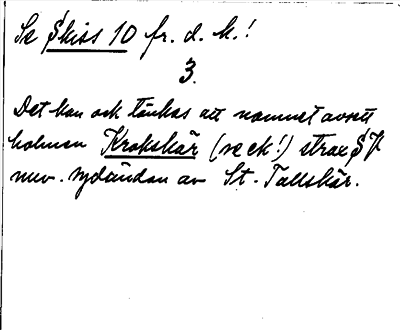 Se Skiss 10 fr. d. k.!
3.
Det kan ock tänkas att namnet avsett
holmen Krokskär (se ek!) strax S
nuv. sydändan av St. Tallskär.